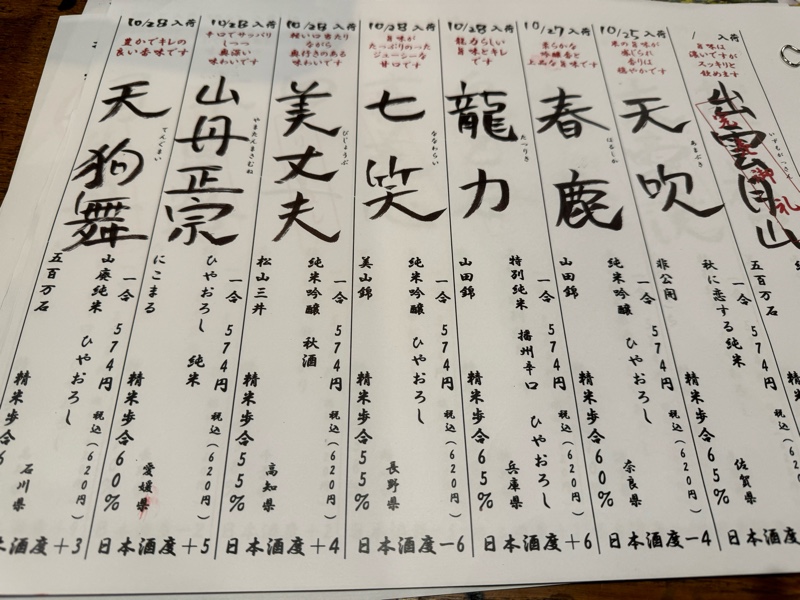 / 入荷
旨味は
濃いですが
スッキリと
飲めます
出雲月山
いずもがっさん
御礼
五百万石
10/25 入荷
米の旨味が
感じられ
香りは
穏やかです
天吹
あまぶき
一合 574円 税込(620円)
秋に恋する純米 佐賀県
非公開 精米歩合65%
日本酒度
10/27 入荷
柔らかな
吟醸香と
上品な旨味です
春鹿
はるしか
一合 574円 税込(620円)
純米吟醸 ひやおろし 奈良県
山田錦 精米歩合60%
日本酒度－4
10/28 入荷
龍力らしい
旨味とキレ
です
龍力
たつりき
一合 574円 税込(620円)
特別純米 播州辛口 ひやおろし 兵庫県
山田錦 精米歩合65%
日本酒度＋6
10/28 入荷
旨味が
たっぷりのった
ジューシーな
甘口です
七笑
ななわらい
一合 574円 税込(620円)
純米吟醸 ひやおろし 長野県
美山錦 精米歩合55%
日本酒度－6
10/28 入荷
軽い口当たり
ながら
奥行きのある
味わいです
美丈夫
びじょうぶ
一合 574円 税込(620円)
純米吟醸 秋酒 高知県
松山三井 精米歩合55%
日本酒度＋4
10/28 入荷
辛口でサッパリ
しつつ
奥深い
味わいです
山丹正宗
やまたんまさむね
一合 574円 税込(620円)
ひやおろし 純米 愛媛県
にこまる 精米歩合60%
日本酒度＋5
10/28 入荷
豊かでキレの
良い香味です
天狗舞
てんぐまい
一合 574円 税込(620円)
山廃純米 ひやおろし 石川県
五百万石 精米歩合6
本酒度＋3